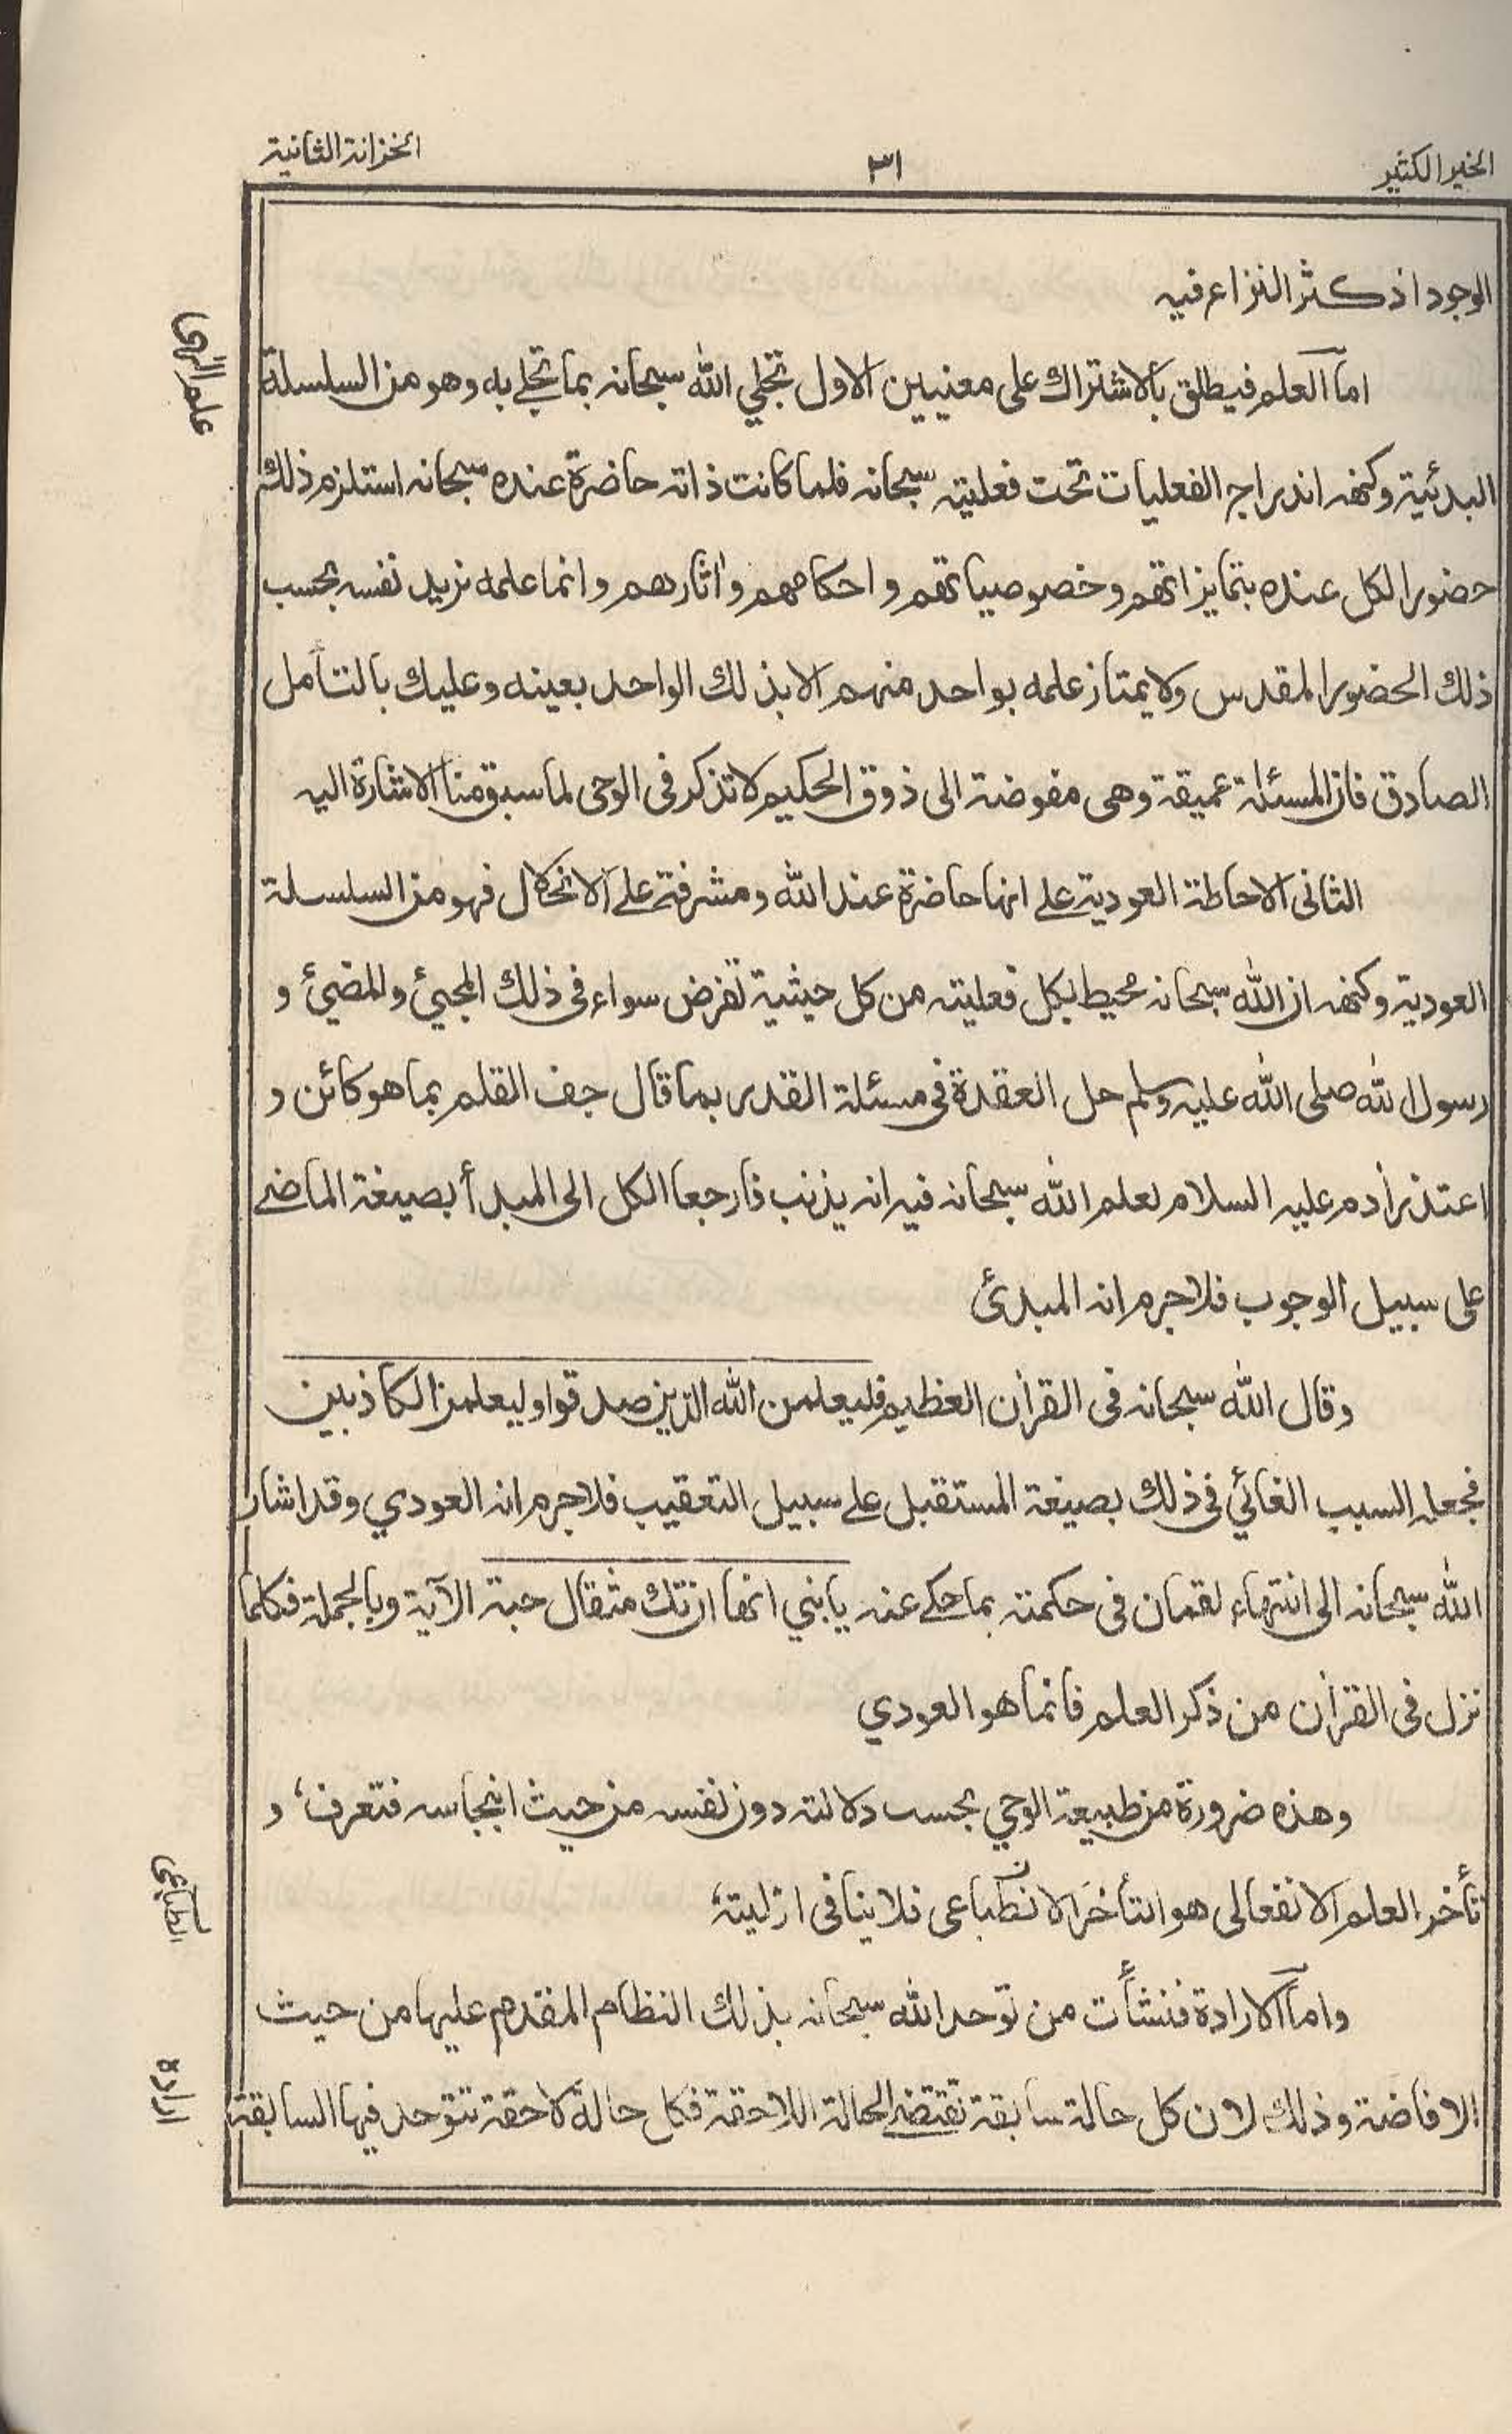 الخير الكثير
٣١
الخزانة الثانية
الوجود اذ كثر النزاع فيه
اما العلم فيطلق بالاشتراك على معنيين الاول تجلي الله سبحانه بما تجلے به وهو من السلسلة
علم الٰہی
البدئية وكنهه اندراج الفعليات تحت فعليته سبحانه فلما كانت ذاته حاضرة عنده سبحانه استلزم ذلك
حضور الكل عنده بتمايزاتهم وخصوصياتهم و احكامهم و اٰثارهم و انما علمه نزيد نفسه بحسب
ذلك الحضور المقدس ولا يمتاز علمه بواحد منهم الا بذلك الواحد بعينه وعليك بالتأمل
الصادق فان المسئلة عميقة وهى مفوضة الى ذوق الحكيم لا تذكر فى الوحى لما سبق منا الاشارة اليه
الثانى الاحاطة العودية علے انها حاضرة عند الله ومشرفة علے الانحلال فهو من السلسلة
العودية وكنهه ان الله سبحانه محيط بكل فعليته من كل حيثية تفرض سواء فى ذلك المجيئ والمضيئ و
رسول الله صلى الله عليه وسلم حل العقدة فى مسئلة القدر بما قال جف القلم بما هو كائن و
اعتذر أدم عليه السلام لعلم الله سبحانه فيه انه يذنب فارجعا الكل الى المبدأ بصيغة الماضے
على سبيل الوجوب فلا جرم انه المبدئ
وقال الله سبحانه فى القرأن العظيم فليعلمن الله الذين صدقوا وليعلمن الكاذبين
فجعله السبب الغائي فى ذلك بصيغة المستقبل علے سبيل التعقيب فلا جرم انه العودي وقد اشار
الله سبحانه الى انتهاء لقمان فى حكمته بما حكے عنه يا بني انها ان تك مثقال حبة الآية وبالجملة فكلما
نزل فى القرأن من ذكر العلم فانما هو العودي
وهذه ضرورة من طبيعة الوحي بحسب دلالته دون نفسه من حيث انبجاسه فتعرف، و
تأخر العلم الانفعالى هو التأخر الانطباعى فلا ينافى ازليته
واما الارادة فنشأت من توحد الله سبحانه بذلك النظام المقدم عليها من حيث
ارادہ
الافاضة وذلك لان كل حالة سابقة تقتضے الحالة اللاحقة فكل حالة لاحقة تتوحد فيها السابقة